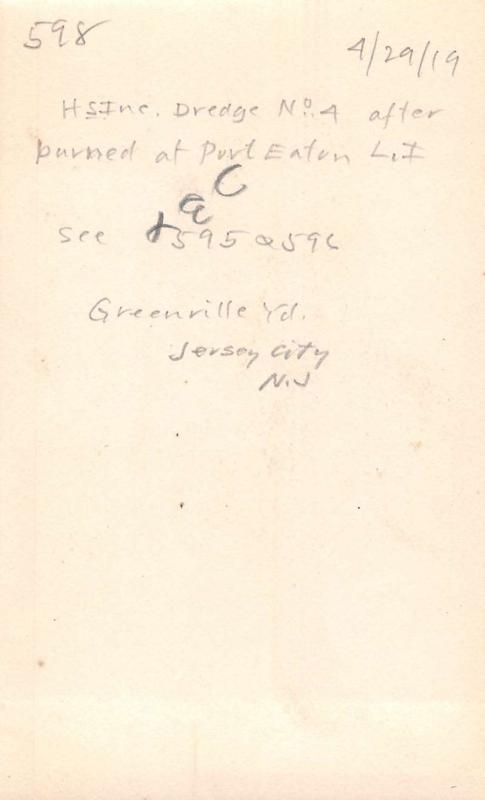 598
4/29/19
HSInc. Dredge No. 4 after
burned at Port Eaton L.I
See 595 & 596
Greenville Yd.
Jersey City
N.J